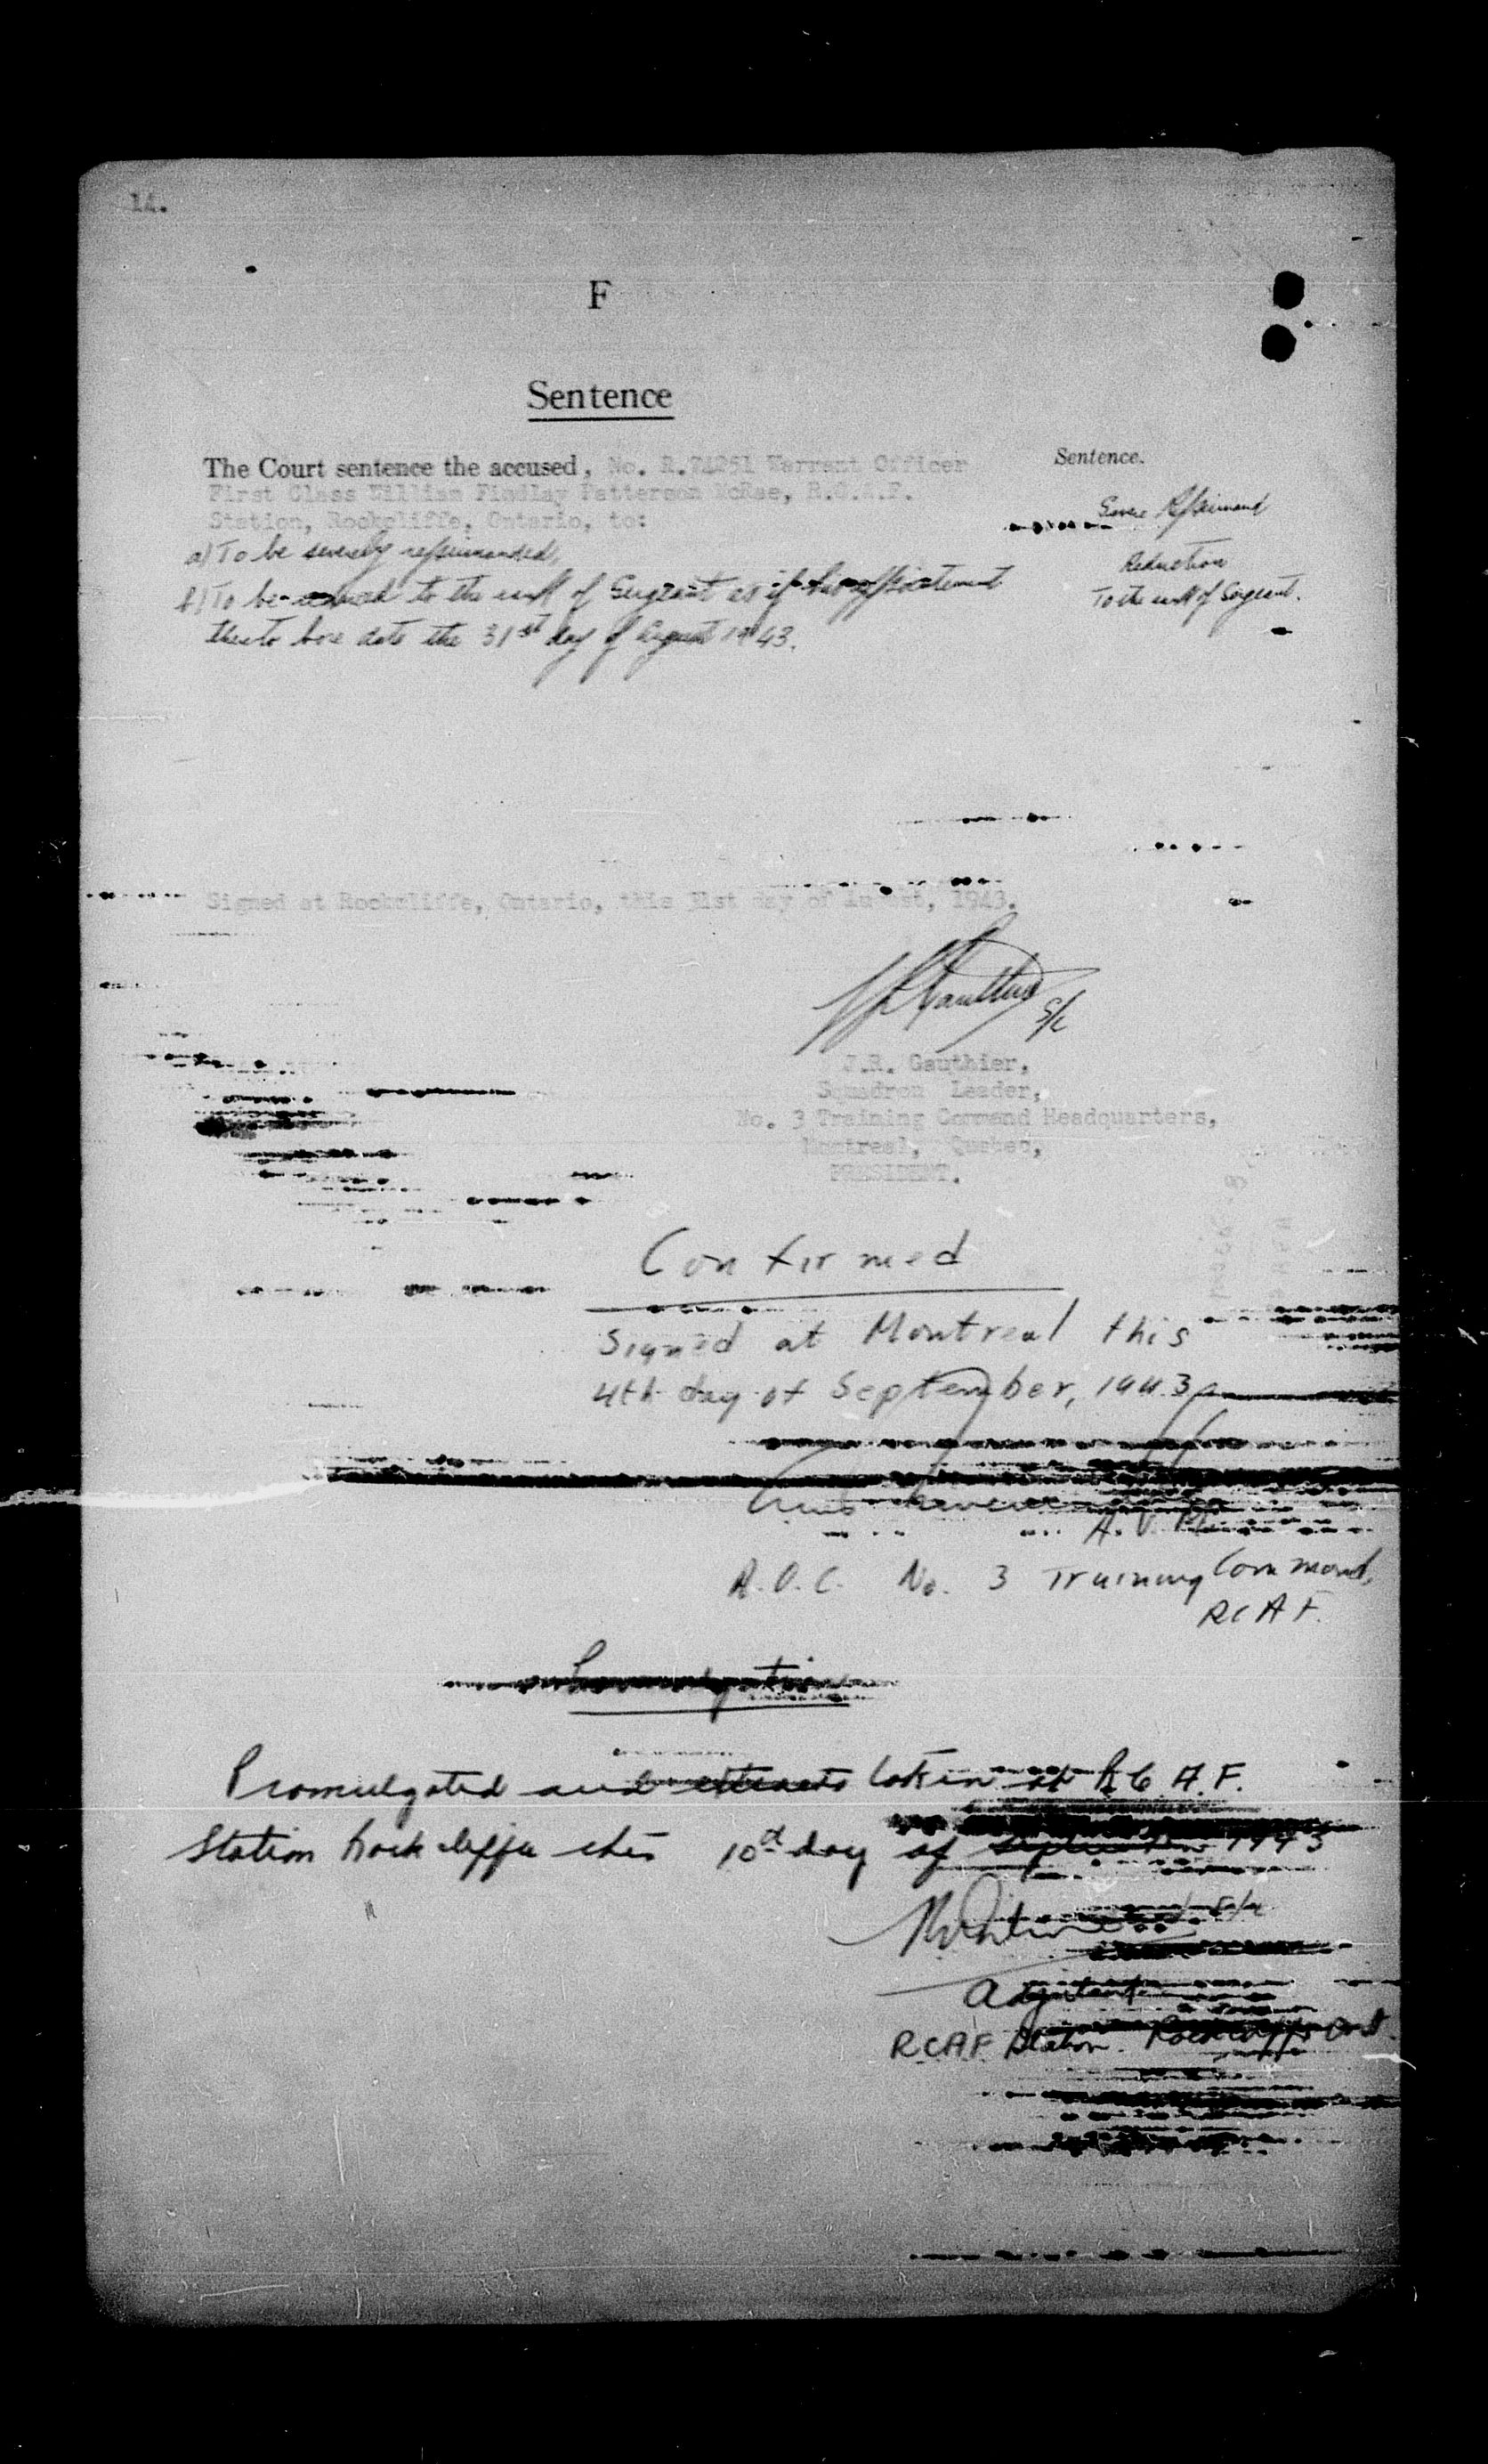 14.
F
Sentence
The Court sentence the accused, No. R.74251 Warrant Officer
First Class William Findlay Patterson McRae, R.C.A.F.
Station, Rockcliffe, Ontario, to:
Sentence.
a) To be severely reprimanded,
b) To be to the rank of Sergeant as if his appointment
thereto bore date the 31st day of August 1943.
Severe Reprimand
Reduction
To the rank of Sergeant.
Signed at Rockcliffe, Ontario, this 31st day of August, 1943.
J.R. Gauthier,
Squadron Leader,
No. 3 Training Command Headquarters,
Montreal, Quebec,
PRESIDENT.
Confirmed
Signed at Montreal this
4th day of September, 1943
A.V.M.
A.O.C. No. 3 Training Command,
RCAF.
Promulgation
Promulgated and extracts taken at R.C.A.F.
Station Rockcliffe this 10th day of September 1943
Adjutant
RCAF Station. Rockcliffe Ont.